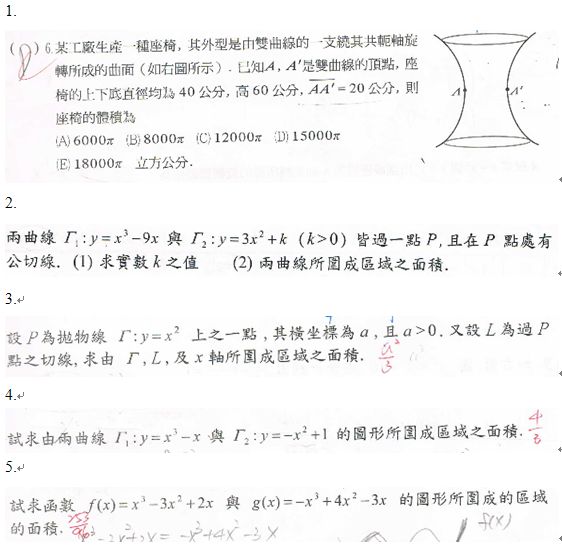 1.
( ) 6.某工廠生產一種座椅，其外型是由雙曲線的一支繞其共軛軸旋
轉所成的曲面（如右圖所示）．已知A，A′是雙曲線的頂點，座
椅的上下底直徑均為 40 公分，高 60 公分，AA′ = 20 公分，則
座椅的體積為
(A) 6000π (B) 8000π (C) 12000π (D) 15000π
(E) 18000π 立方公分．
A A′
2.
兩曲線 Γ₁ : y = x³ − 9x 與 Γ₂ : y = 3x² + k (k > 0) 皆過一點 P, 且在 P 點處有
公切線. (1) 求實數 k 之值 (2) 兩曲線所圍成區域之面積.
3.
設 P 為拋物線 Γ : y = x² 上之一點 , 其橫坐標為 a , 且 a > 0 . 又設 L 為過 P
點之切線, 求由 Γ , L , 及 x 軸所圍成區域之面積.
4.
試求由兩曲線 Γ₁ : y = x³ − x 與 Γ₂ : y = −x² + 1 的圖形所圍成區域之面積. 4/3
5.
試求函數 f(x) = x³ − 3x² + 2x 與 g(x) = −x³ + 4x² − 3x 的圖形所圍成的區域
的面積. f(x)